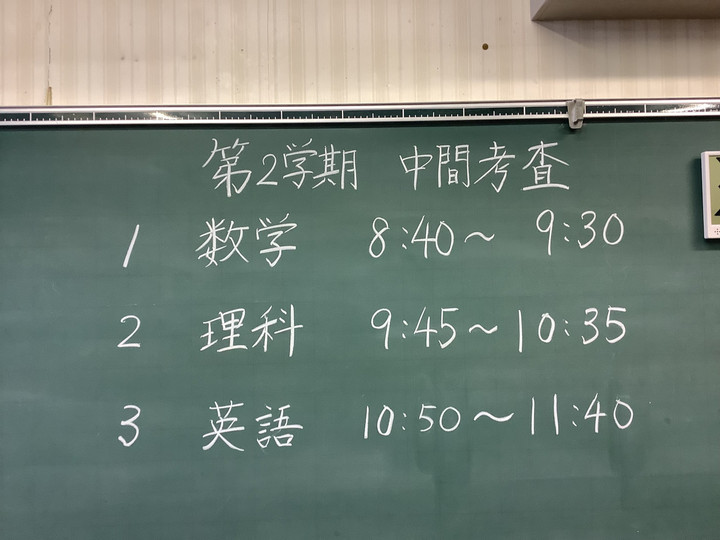 第2学期 中間考査
1 数学 8:40～ 9:30
2 理科 9:45～10:35
3 英語 10:50～11:40